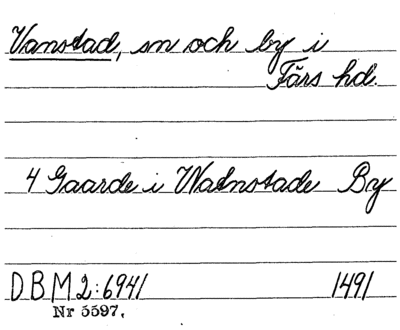 Vanstad, sn och by i
Färs hd.
4 Gaarde i Wadnstade By
DBM 2:6941 1491
Nr 5597.